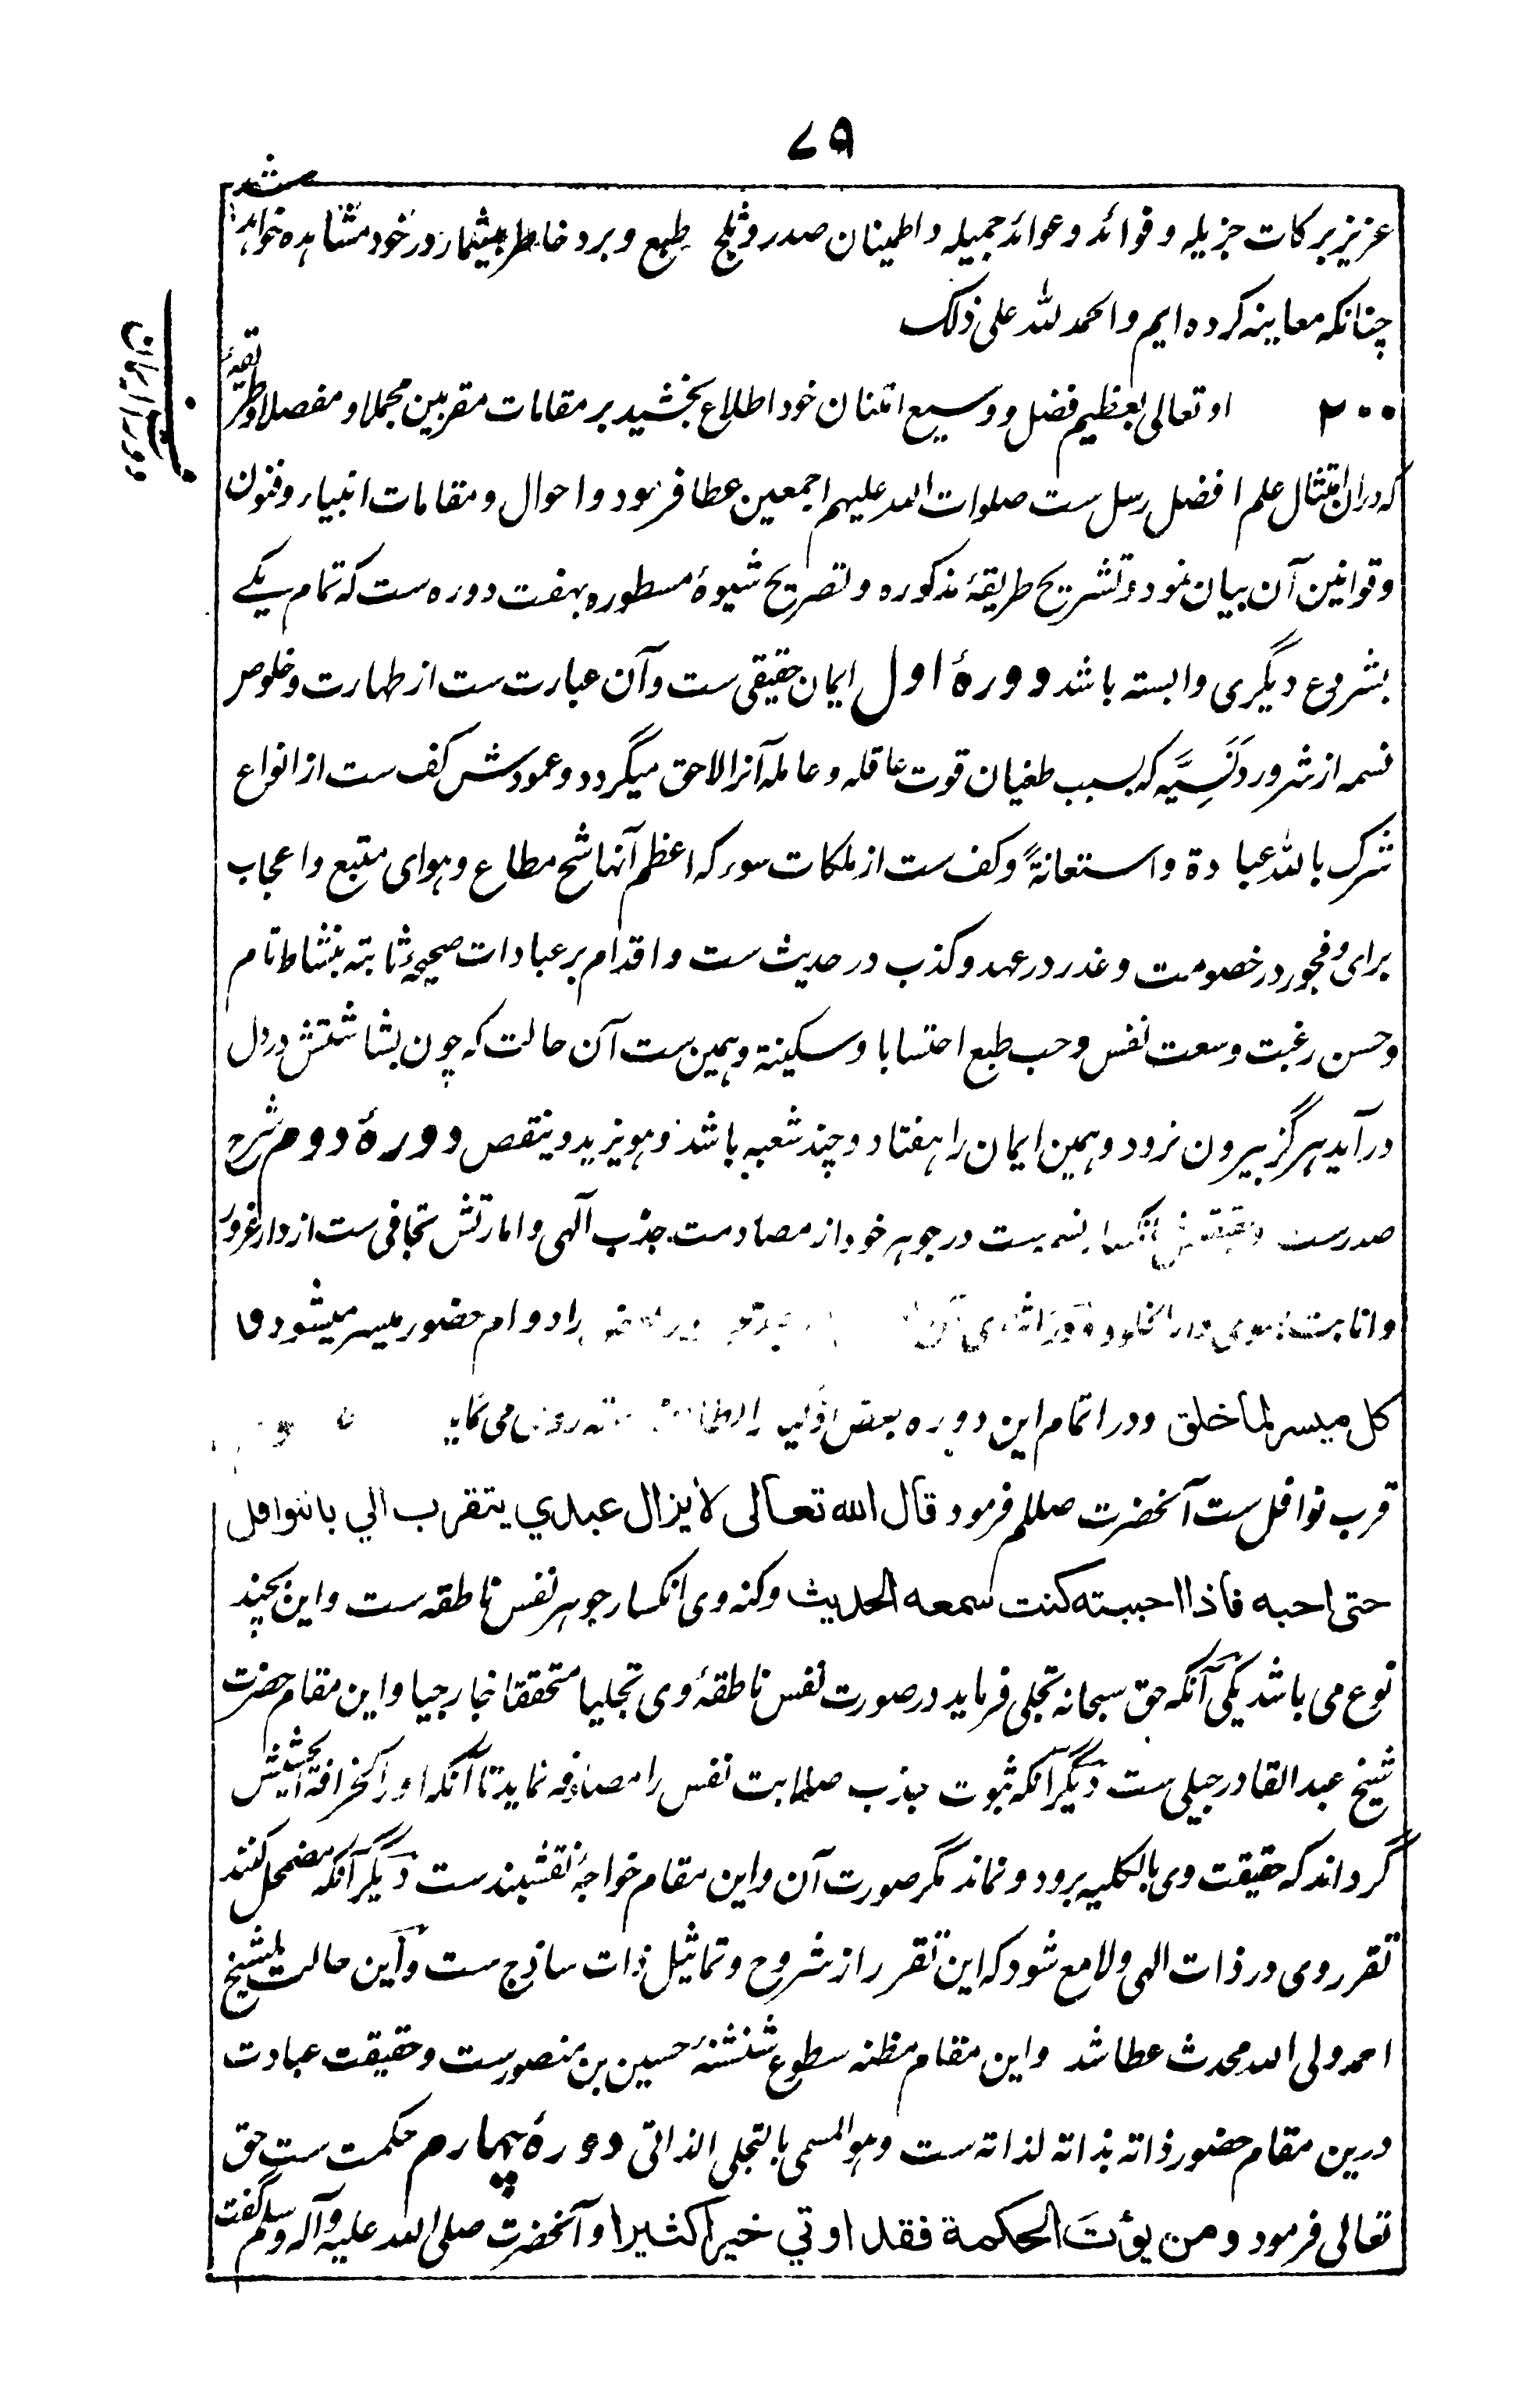 ۷۹
عزیز برکات جزیله و فوائد و عوائد جمیله و اطمینان صدر و ثلج طبع و برد خاطر بیشمار در خود مشاهده خواهد شد
چنانکه معاینه کرده ایم والحمد لله علی ذلک
۲۰۰ او تعالی بعظیم فضل و وسیع امتنان خود اطلاع بخشید بر مقامات مقربین مجملا و مفصلا و طریقهٔ
که در ان امتثال علم افضل رسل ست صلوات الله علیهم اجمعین عطا فرمود و احوال و مقامات انبیاء و فنون
و قوانین آن بیان نمود و تشریح طریقهٔ مذکوره و تصریح شیوهٔ مسطوره بهفت دوره ست که تمام یکے
بشروع دیگری وابسته باشد دورهٔ اول ایمان حقیقی ست و آن عبارت ست از طهارت و خلوص
نسمه از شرور دَنَسِیَّه که بسبب طغیان قوت عاقله و عامله آنرا لاحق میگردد و عمودش کف ست از انواع
شرک بالله عبادة و استعانةً و کف ست از ملکات سوء که اعظم آنها شح مطاع و هوای متبع و اعجاب
برای و فجور در خصومت و غدر در عهد و کذب در حدیث ست و اقدام بر عبادات صحیحهٔ ثابته بنشاط تام
و حسن رغبت و سعت نفس و حب طبع احتسابا و سکینة و همین ست آن حالت که چون بشاشتش در دل
در آید هرگز بیرون نرود و همین ایمان را هفتاد و چند شعبه باشد و هو یزید و ینقص دورهٔ دوم شرح
صدر ست و حقیقتش انکسار نسمه ست در جوهر خود از مصادمت جذب آلهی و امارتش تجافی ست از دار غرور
و انابت بسوی دار الخلود را دوام حضور میسر میشود و
کل میسر لما خلق و در اتمام این دوره بعض می نماید
قرب نوافل ست آنحضرت صللم فرمود قال الله تعالی لا یزال عبدي یتقرب الي بالنوافل
حتی احبه فاذا احببته کنت سمعه الحدیث و کنه وی انکسار جوهر نفس ناطقه ست و این بچند
نوع می باشد یکی آنکه حق سبحانه تجلی فرماید در صورت نفس ناطقهٔ وی تجلیا متحققا خارجیا و این مقام حضرت
شیخ عبد القادر جیلی ست دیگر آنکه ثبوت جذب صلابت نفس را نماید تا آنکه او را
گرداند که حقیقت وی بالکلیه برود و نماند مگر صورت آن و این مقام خواجهٔ نقشبند ست دیگر آنکه مضمحل کنند
تقرر وی در ذات الهی و لامع شود که این تقرر از شروح و تماثیل ذات ساذج ست و این حالت بشیخ
احمد ولی الله محدث عطا شد و این مقام مظنه سطوع شنشنهٔ حسین بن منصور ست و حقیقت عبادت
درین مقام حضور ذاته بذاته لذاته ست و هو المسمی بالتجلی الذاتی دورهٔ چهارم حکمت ست حق
تعالی فرمود و من یؤت الحکمة فقد اوتي خیرا کثیرا و آنحضرت صلی الله علیه و آله و سلم گفت